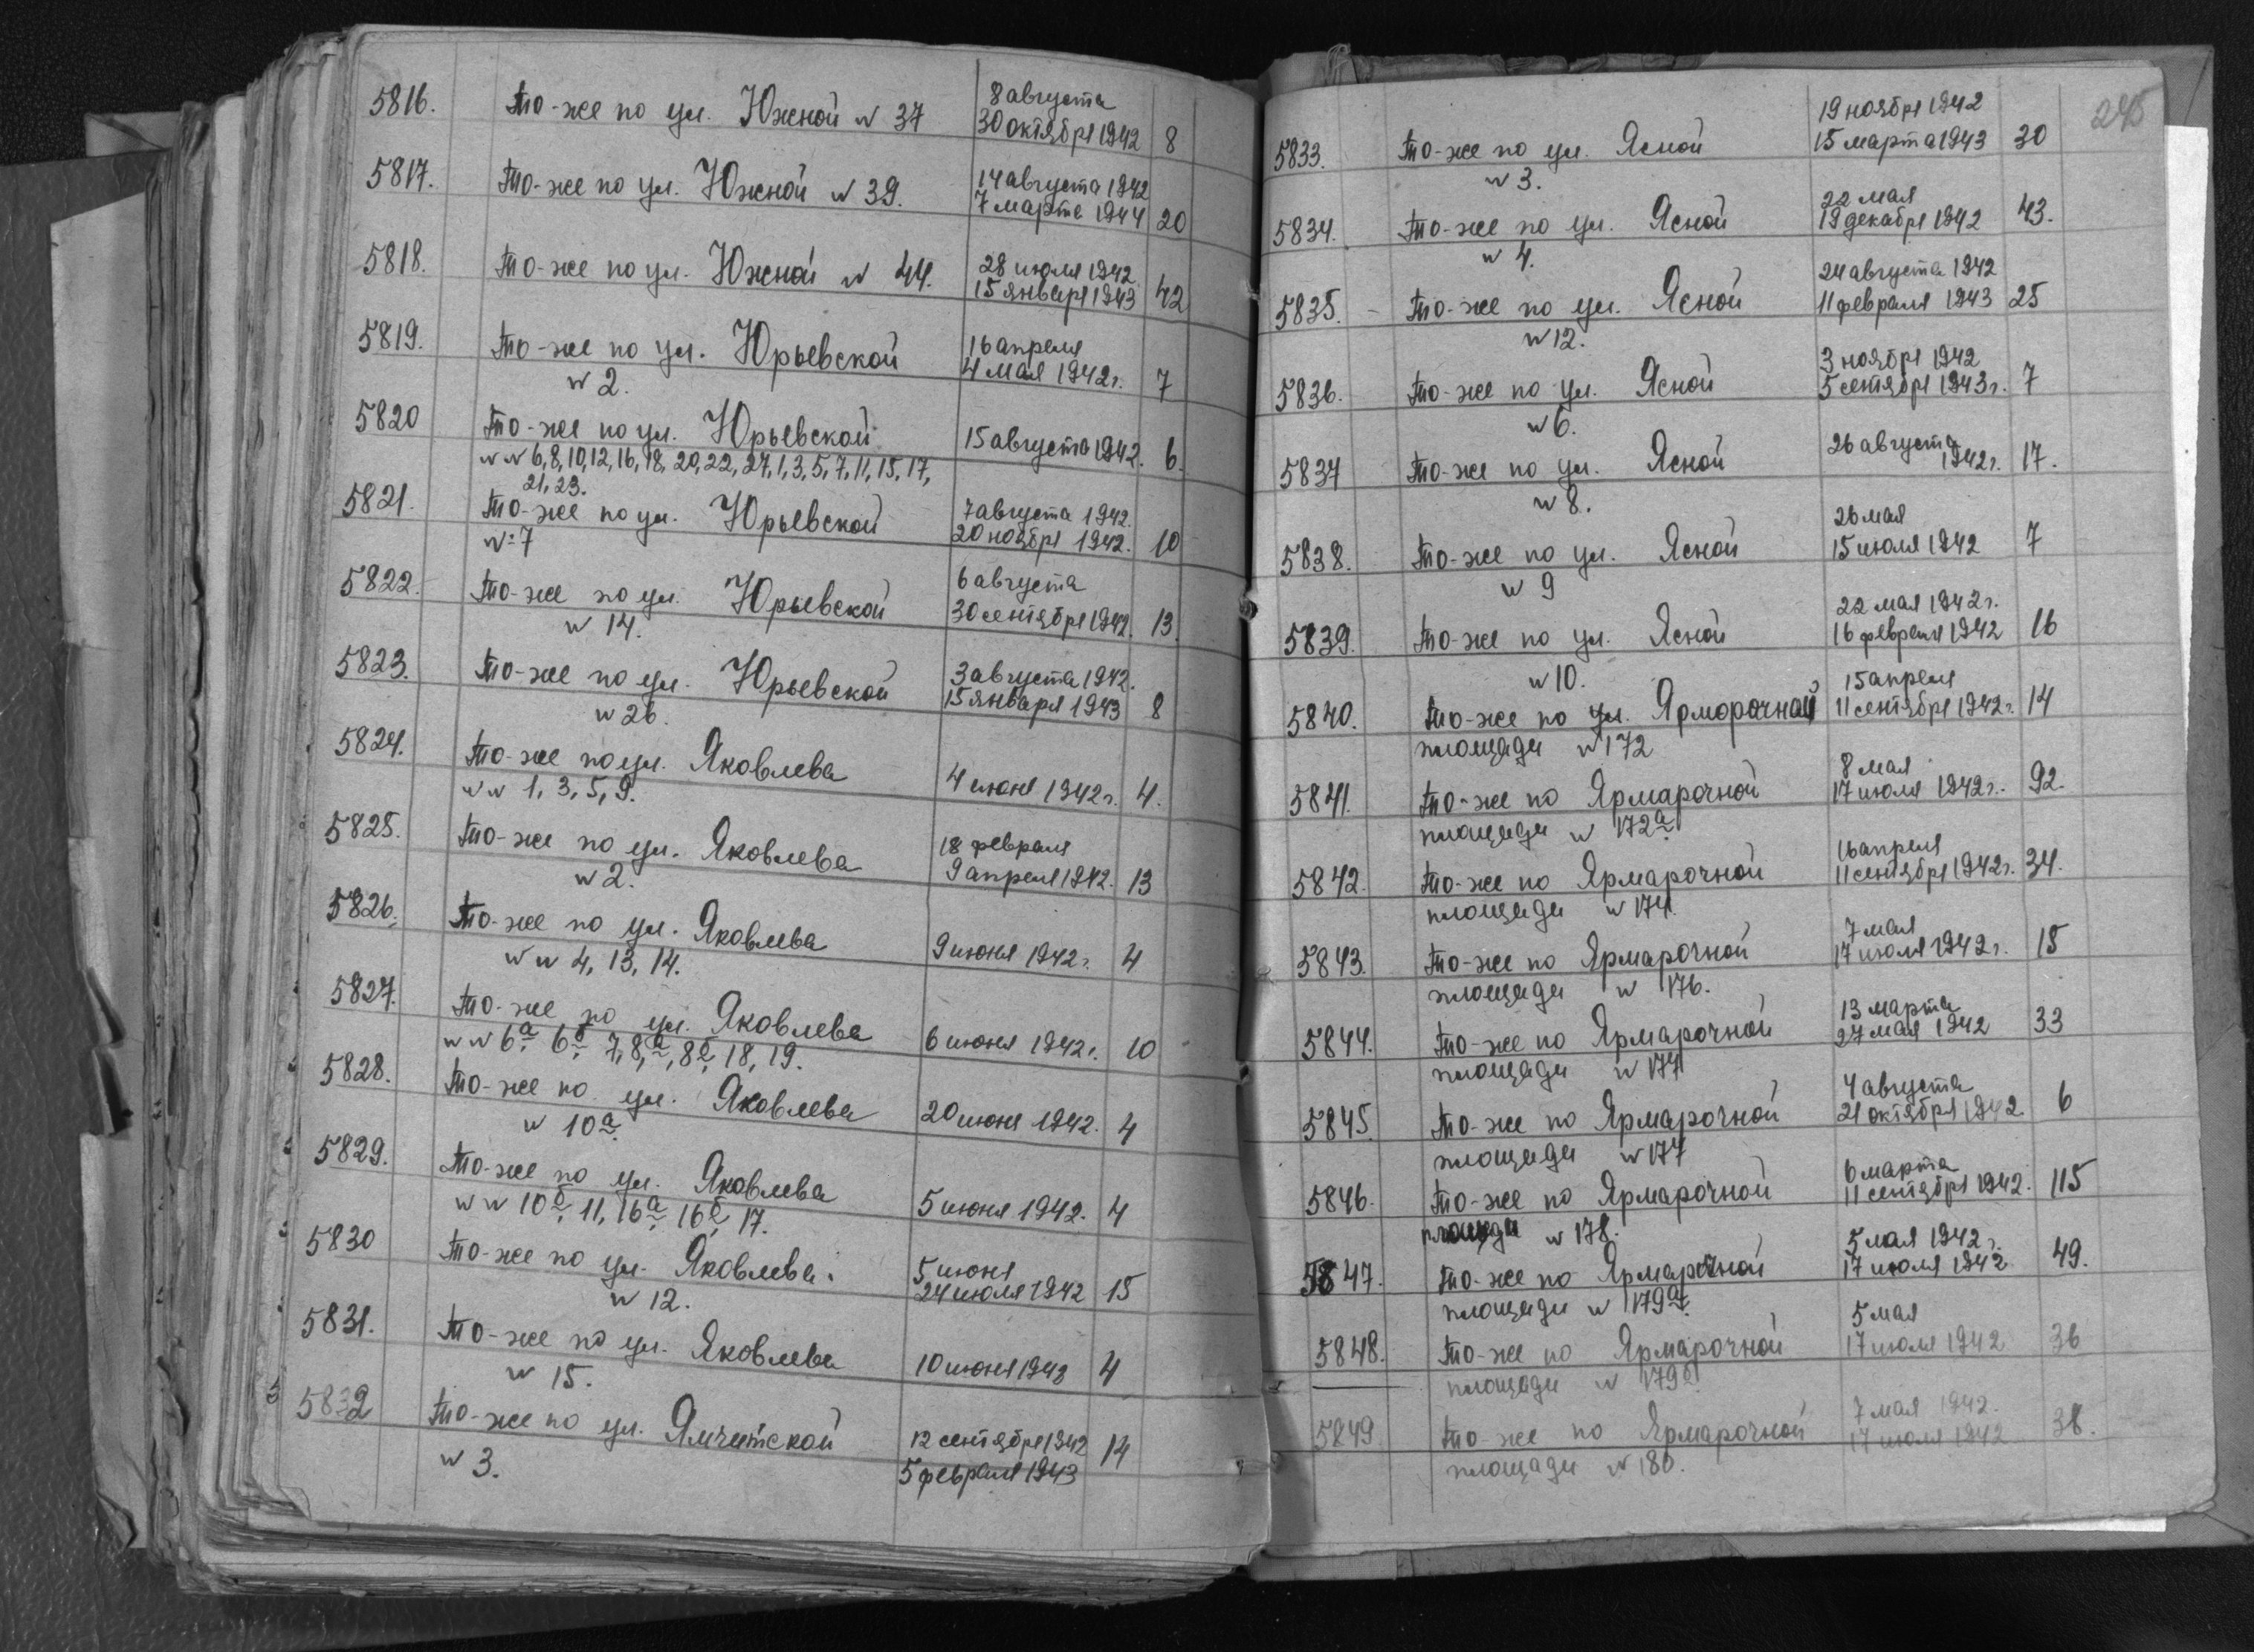 5816. То-же по ул. Южной № 37 8 августа
30 октября 1942 8
5817. То-же по ул. Южной № 39. 14 августа 1942
7 марта 1944 20
5818. То-же по ул. Южной № 44. 28 июля 1942
15 января 1943 42
5819. То-же по ул. Юрьевской 16 апреля
№ 2. 4 мая 1942г. 7
5820 То-же по ул. Юрьевской 15 августа 1942. 6.
№№ 6, 8, 10, 12, 16, 18, 20, 22, 27, 1, 3, 5, 7, 11, 15, 17,
21, 23.
5821. То-же по ул. Юрьевской 7 августа 1942.
№ 7 20 ноября 1942. 10
5822. То-же по ул. Юрьевской 6 августа
№ 14. 30 сентября 1942. 13.
5823. То-же по ул. Юрьевской 3 августа 1942.
№ 26. 15 января 1943 8
5824. То-же по ул. Яковлева
№№ 1, 3, 5, 9. 4 июня 1942г. 4.
5825. То-же по ул. Яковлева 18 февраля
№ 2. 9 апреля 1942. 13
5826. То-же по ул. Яковлева
№№ 4, 13, 14. 9 июня 1942г. 4
5827. То-же по ул. Яковлева
№№ 6а, 6б, 7, 8а, 8б, 18, 19. 6 июня 1942г. 10
5828. То-же по ул. Яковлева
№ 10а. 20 июня 1942. 4
5829. То-же по ул. Яковлева
№№ 10б, 11, 16а, 16б, 17. 5 июня 1942. 4
5830 То-же по ул. Яковлева. 5 июня
№ 12. 24 июля 1942 15
5831. То-же по ул. Яковлева
№ 15. 10 июня 1943 4
5832 То-же по ул. Ямчитской 12 сентября 1942 14
№ 3. 5 февраля 1943
245
5833. То-же по ул. Ясной 19 ноября 1942
№ 3. 15 марта 1943 30
5834. То-же по ул. Ясной 22 мая
№ 4. 19 декабря 1942 43.
5835. То-же по ул. Ясной 24 августа 1942
№ 12. 11 февраля 1943 25
5836. То-же по ул. Ясной 3 ноября 1942
№ 6. 5 сентября 1943г. 7
5837 То-же по ул. Ясной 26 августа
№ 8. 1942г. 17.
5838. То-же по ул. Ясной 26 мая
№ 9 15 июля 1942 7
5839. То-же по ул. Ясной 22 мая 1942г.
№ 10. 16 февраля 1942 16
5840. То-же по ул. Ярморочной 15 апреля
площади № 172 11 сентября 1942г. 14
5841. То-же по Ярмарочной 8 мая
площади № 172а 17 июля 1942г. 92.
5842. То-же по Ярмарочной 16 апреля
площади № 174. 11 сентября 1942г. 34.
5843. То-же по Ярмарочной 7 мая
площади № 176. 17 июля 1942г. 15
5844. То-же по Ярмарочной 13 марта
площади № 177 27 мая 1942 33
5845. То-же по Ярмарочной 4 августа
площади № 177 21 октября 1942. 6
5846. То-же по Ярмарочной 6 марта
площади № 178. 11 сентября 1942. 115
5847. То-же по Ярмарочной 5 мая 1942г.
площади № 179а. 17 июля 1942 49.
5848. То-же по Ярмарочной 5 мая
площади № 179б 17 июля 1942 36
5849 То-же по Ярмарочной 7 мая 1942.
площади № 180. 17 июля 1942 38.